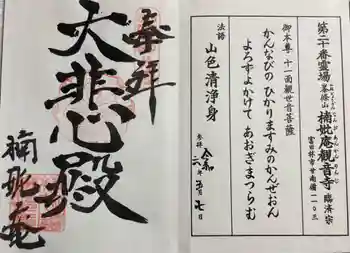 第二十番霊場
峯條山 楠妣庵観音寺 臨済宗
富田林市甘南備一一〇三
御本尊 十一面観世音菩薩
かんなびの ひかりますみの かんぜおん
よろずよかけて あおぎまつらむ
法語
山色清浄身
参拝 令和 六年 五月 七日
奉拝
大悲殿
楠妣庵